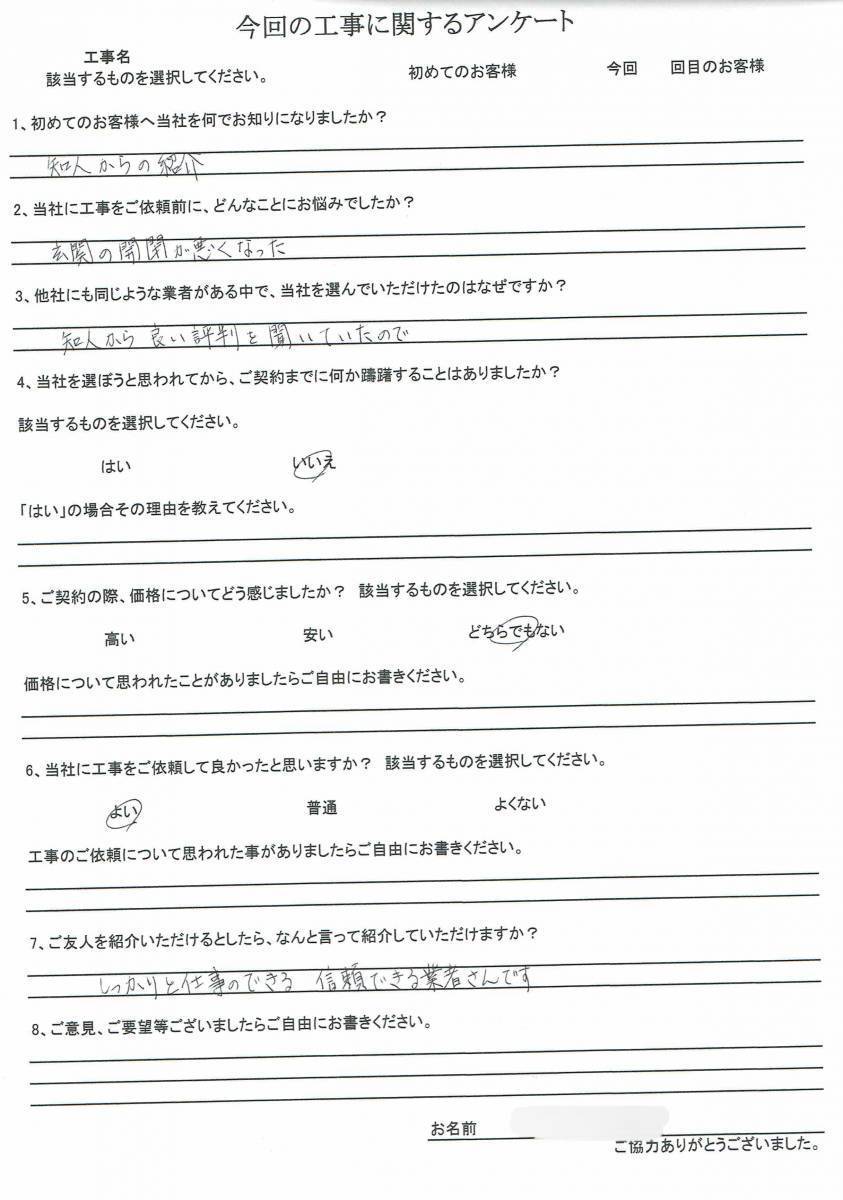 今回の工事に関するアンケート
工事名
該当するものを選択してください。 初めてのお客様 今回 回目のお客様
1、初めてのお客様へ当社を何でお知りになりましたか？
知人からの紹介
2、当社に工事をご依頼前に、どんなことにお悩みでしたか？
玄関の開閉が悪くなった
3、他社にも同じような業者がある中で、当社を選んでいただけたのはなぜですか？
知人から良い評判を聞いていたので
4、当社を選ぼうと思われてから、ご契約までに何か躊躇することはありましたか？
該当するものを選択してください。
はい いいえ
「はい」の場合その理由を教えてください。
5、ご契約の際、価格についてどう感じましたか？ 該当するものを選択してください。
高い 安い どちらでもない
価格について思われたことがありましたらご自由にお書きください。
6、当社に工事をご依頼して良かったと思いますか？ 該当するものを選択してください。
よい 普通 よくない
工事のご依頼について思われた事がありましたらご自由にお書きください。
7、ご友人を紹介いただけるとしたら、なんと言って紹介していただけますか？
しっかりと仕事のできる 信頼できる業者さんです
8、ご意見、ご要望等ございましたらご自由にお書きください。
お名前
ご協力ありがとうございました。